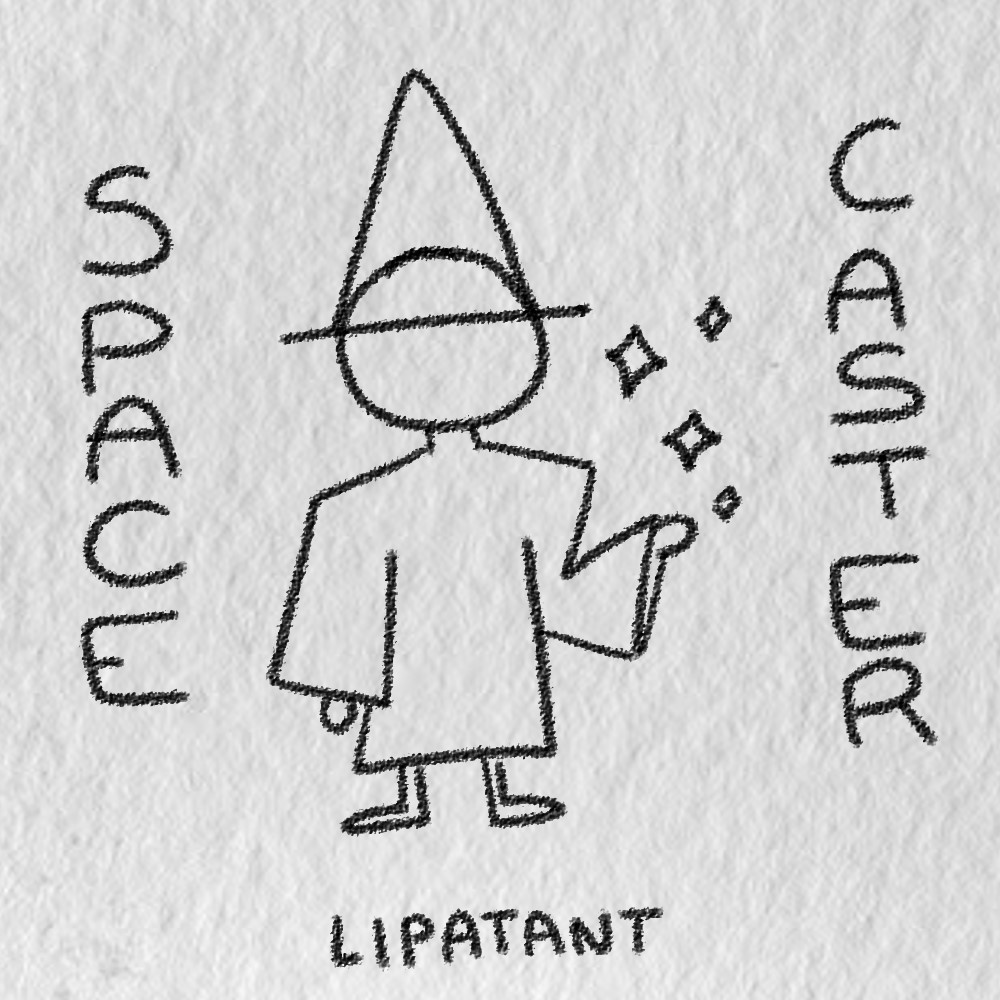 SPACE
CASTER
LIPATANT